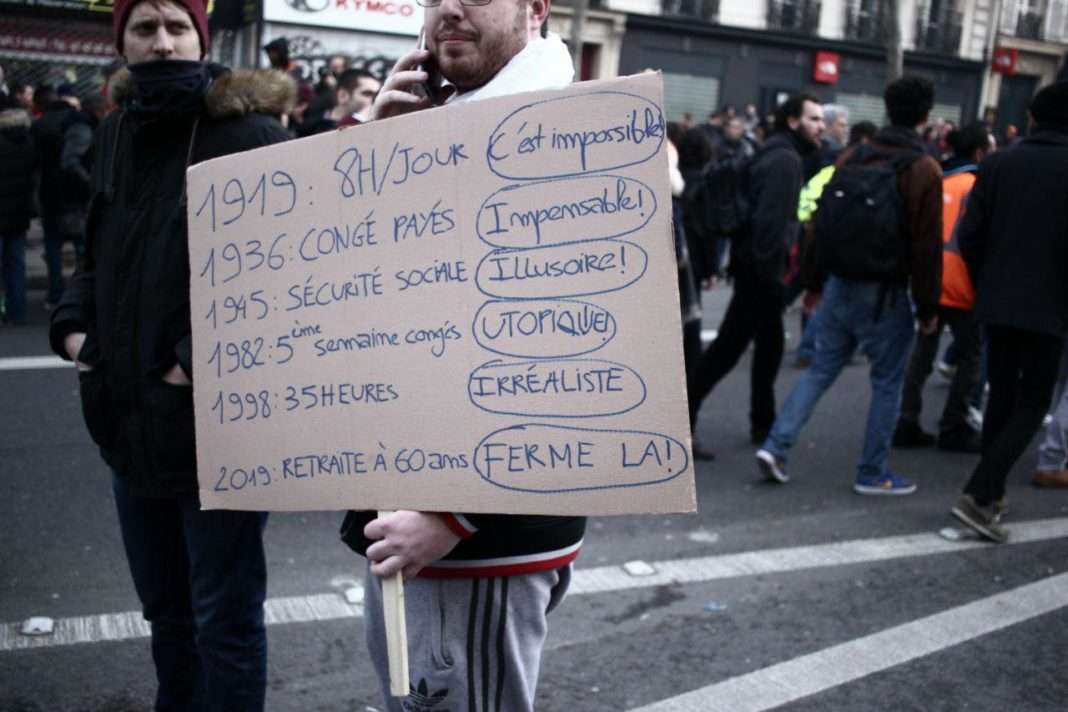 KYMCO
1919: 8H/JOUR C'est impossible!
1936: CONGÉ PAYÉS Impensable!
1945: SÉCURITÉ SOCIALE Illusoire!
1982: 5ème semaine congés UTOPIQUE!
1998: 35HEURES IRRÉALISTE
2019: RETRAITE À 60ans FERME LA!